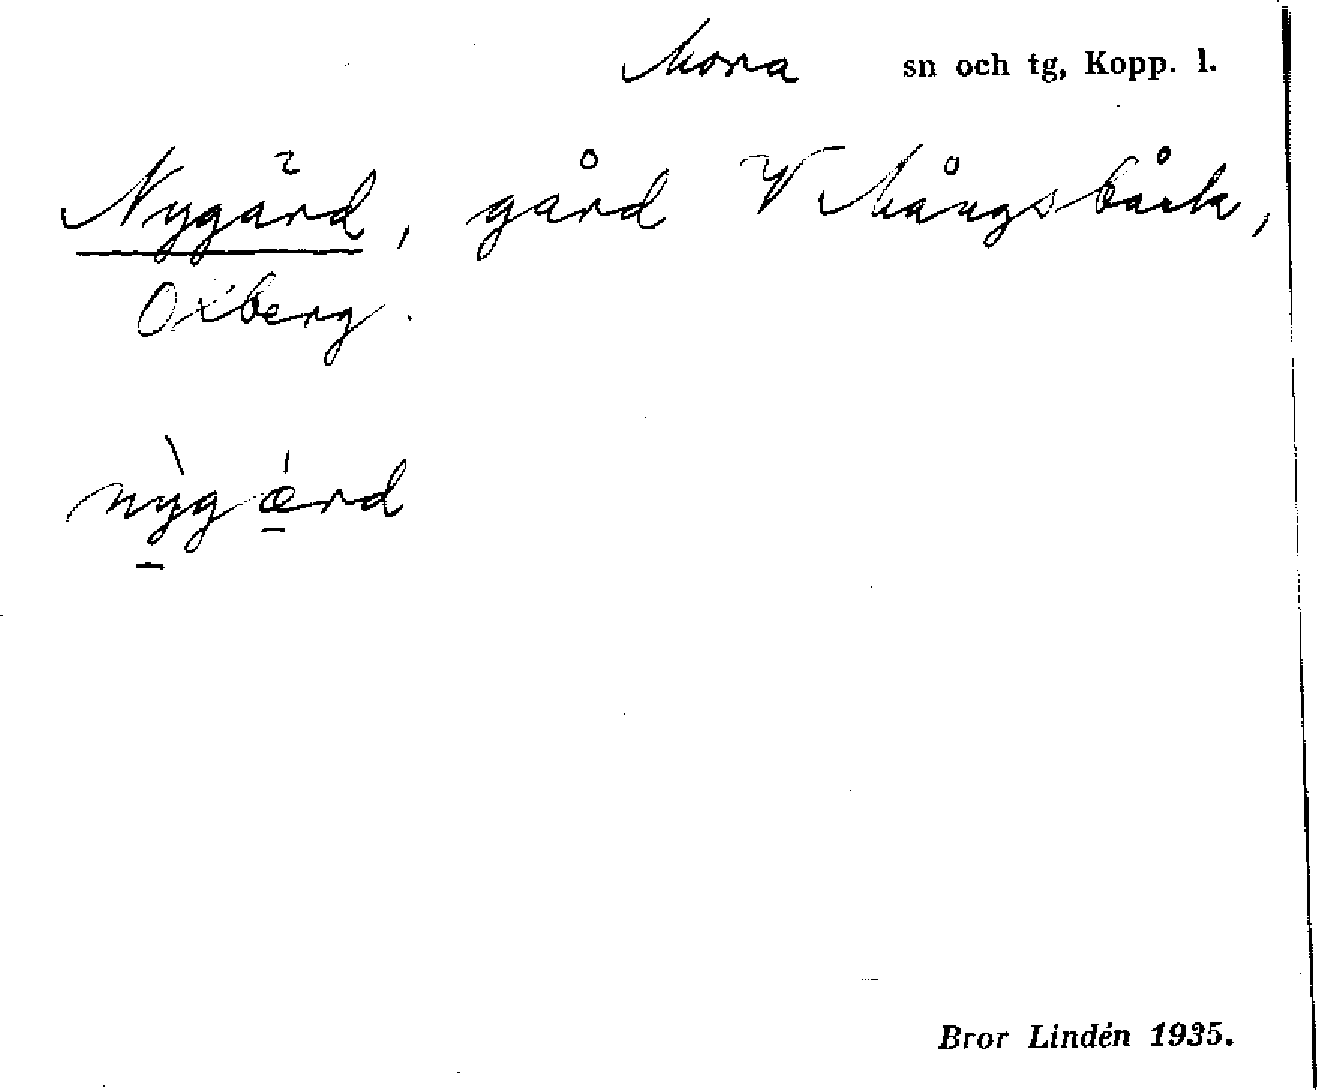 Mora sn och tg, Kopp. l.
Nygård, gård V Mångsbåck,
Oxberg.
nỳgǽrd
Bror Lindén 1935.